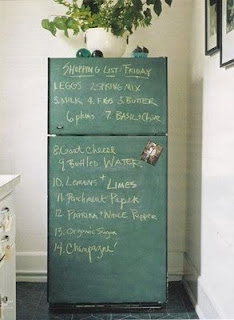 SHOPPING LIST: FRIDAY
1. EGGS 2. SPRING MIX
3. MILK 4. FIGS 5. BUTTER
6. plums 7. BASIL &
8. Goat Cheese
9. Bottled WATER
10. Lemons + LIMES
11. Parchment Paper
12. PAPRIKA + White Pepper
13. Organic Sugar
14. Champagne!